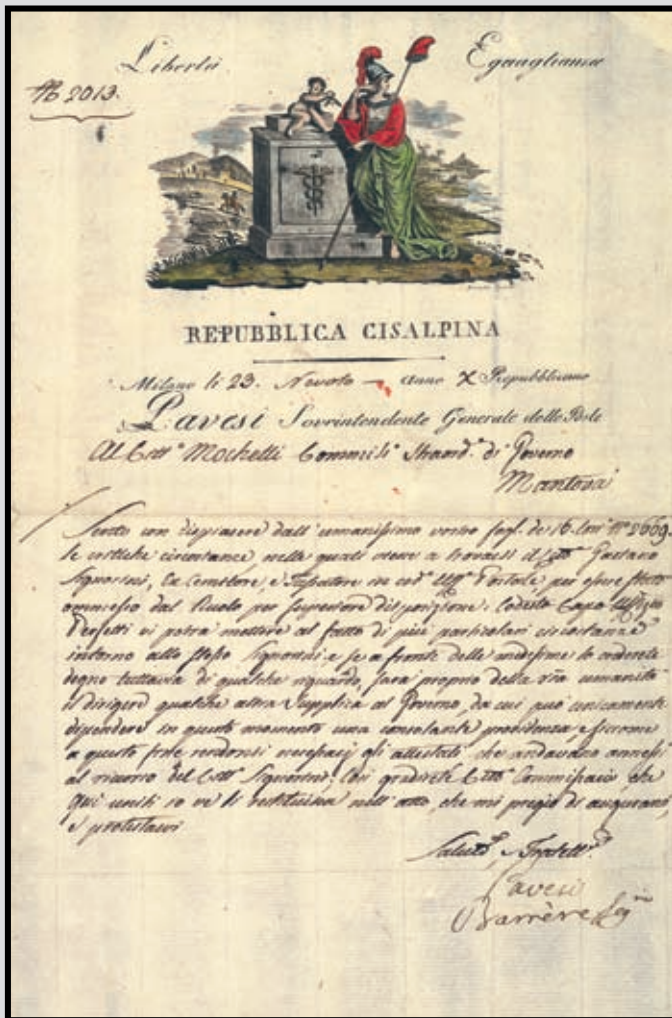 Libertà Eguaglianza
N. 2013.
REPUBBLICA CISALPINA
Milano li 23. Nevoso anno X Repubblicano
Pavesi Sovrintendente Generale delle Poste
Al Citt.º Mochetti Commiss.º Straord.º di Governo
Mantova
Sento con dispiacere dall' umanissimo vostro fogl. de 16. Corr. Nº 2669.
le critiche circostanze, nelle quali viene a trovarsi il Citt.º Gaetano
Signorini, Ex e in cod.º Uff.º Postale, per essere stato
ommesso dal Ruolo per Superiore disposizione. Codesto Capo Uffizio
Perfetti vi potrà mettere al fatto di più particolari circostanze
intorno allo stesso Signorini, e se a fronte delle medesime lo crederete
degno tuttavia di qualche riguardo, sarà proprio della vrã umanità
il dirigere qualche altra Supplica al Governo, da cui può unicamente
dipendere in questo momento una consolante providenza, e siccome
a questo fine rendonsi necessarj gli attestati, che andavano annessi
al ricorso del Citt.º Signorini, così gradirete Citt.º Commissario, che
qui uniti io ve li restituisca nell' atto, che mi pregio di augurarvi,
e protestarvi
Salute, e Fratell.ª
Pavesi
Barrère